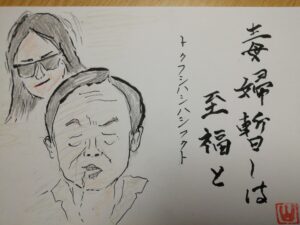 毒婦暫しは
至福と
トクフシハシハシフクト